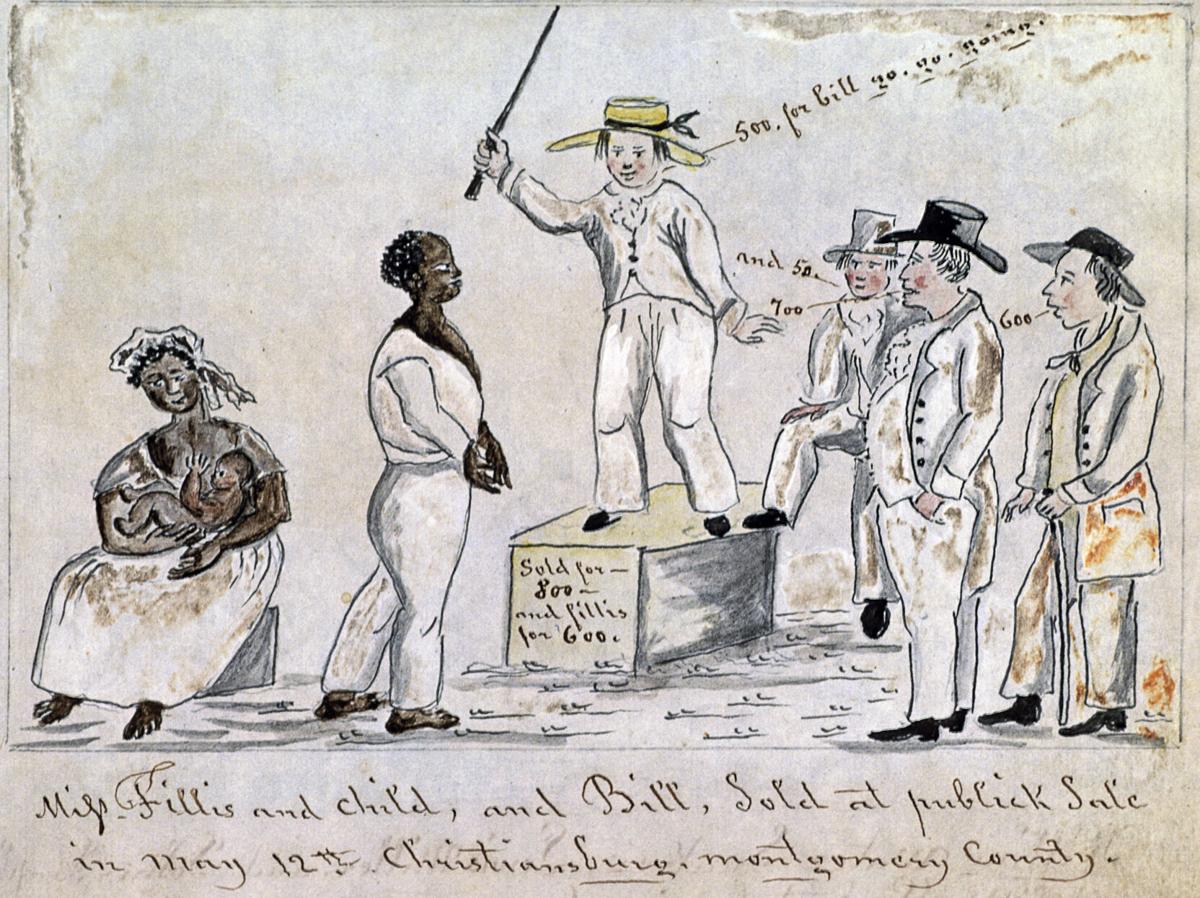 500. for bill go. go. going.
and 50.
700
600
Sold for—
800—
and fillis
for 600.
Miſs. Fillis and child, and Bill, Sold at publick Sale
in May 12th. Christiansburg. montgomery County.